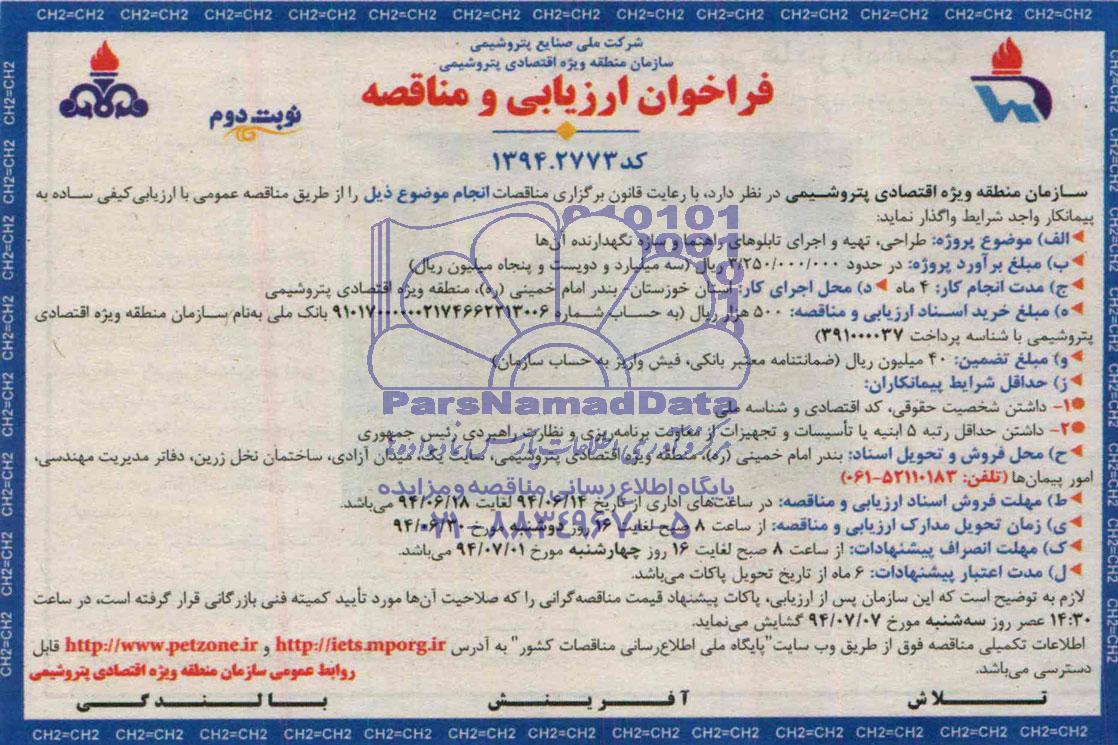 CH2=CH2 CH2=CH2 CH2=CH2 CH2=CH2 CH2=CH2 CH2=CH2 CH2=CH2 CH2=CH2 CH2=CH2 CH2=CH2 CH2=CH2 CH2=CH2 CH2=CH2
شرکت ملی صنایع پتروشیمی
سازمان منطقه ویژه اقتصادی پتروشیمی
فراخوان ارزیابی و مناقصه
نوبت دوم
کد ۱۳۹۴.۲۷۷۳
سازمان منطقه ویژه اقتصادی پتروشیمی در نظر دارد، با رعایت قانون برگزاری مناقصات انجام موضوع ذیل را از طریق مناقصه عمومی با ارزیابی کیفی ساده به
پیمانکار واجد شرایط واگذار نماید:
الف) موضوع پروژه: طراحی، تهیه و اجرای تابلوهای راهنما و سازه نگهدارنده آن‌ها
ب) مبلغ برآورد پروژه: در حدود ۳/۲۵۰/۰۰۰/۰۰۰ ریال (سه میلیارد و دویست و پنجاه میلیون ریال)
ج) مدت انجام کار: ۴ ماه د) محل اجرای کار: استان خوزستان، بندر امام خمینی (ره)، منطقه ویژه اقتصادی پتروشیمی
ه) مبلغ خرید اسناد ارزیابی و مناقصه: ۵۰۰ هزار ریال (به حساب شماره ۹۱۰۱۷۰۰۰۰۰۰۲۱۷۴۶۶۲۲۱۳۰۰۶ بانک ملی به‌نام سازمان منطقه ویژه اقتصادی
پتروشیمی با شناسه پرداخت ۳۹۱۰۰۰۰۳۷)
و) مبلغ تضمین: ۴۰ میلیون ریال (ضمانتنامه معتبر بانکی، فیش واریز به حساب سازمان)
ز) حداقل شرایط پیمانکاران:
۱- داشتن شخصیت حقوقی، کد اقتصادی و شناسه ملی
۲- داشتن حداقل رتبه ۵ ابنیه یا تأسیسات و تجهیزات از معاونت برنامه‌ریزی و نظارت راهبردی رئیس جمهوری
ح) محل فروش و تحویل اسناد: بندر امام خمینی (ره)، منطقه ویژه اقتصادی پتروشیمی، سایت یک، میدان آزادی، ساختمان نخل زرین، دفاتر مدیریت مهندسی،
امور پیمان‌ها (تلفن: ۵۲۱۱۰۱۸۳-۰۶۱)
ط) مهلت فروش اسناد ارزیابی و مناقصه: در ساعت‌های اداری از تاریخ ۹۴/۰۶/۱۴ لغایت ۹۴/۰۶/۱۸ می‌باشد.
ی) زمان تحویل مدارک ارزیابی و مناقصه: از ساعت ۸ صبح لغایت ۱۶ روز دوشنبه مورخ ۹۴/۰۶/۳۰
ک) مهلت انصراف پیشنهادات: از ساعت ۸ صبح لغایت ۱۶ روز چهارشنبه مورخ ۹۴/۰۷/۰۱ می‌باشد.
ل) مدت اعتبار پیشنهادات: ۶ ماه از تاریخ تحویل پاکات می‌باشد.
لازم به توضیح است که این سازمان پس از ارزیابی، پاکات پیشنهاد قیمت مناقصه‌گرانی را که صلاحیت آن‌ها مورد تأیید کمیته فنی بازرگانی قرار گرفته است، در ساعت
۱۴:۳۰ عصر روز سه‌شنبه مورخ ۹۴/۰۷/۰۷ گشایش می‌نماید.
اطلاعات تکمیلی مناقصه فوق از طریق وب سایت "پایگاه ملی اطلاع‌رسانی مناقصات کشور" به آدرس http://iets.mporg.ir و http://www.petzone.ir قابل
دسترسی می‌باشد.
روابط عمومی سازمان منطقه ویژه اقتصادی پتروشیمی
تلاش آفرینش بالندگی
CH2=CH2 CH2=CH2 CH2=CH2 CH2=CH2 CH2=CH2 CH2=CH2 CH2=CH2 CH2=CH2 CH2=CH2 CH2=CH2 CH2=CH2 CH2=CH2 CH2=CH2
ParsNamadData
پایگاه اطلاع رسانی مناقصه و مزایده
۰۲۱-۸۸۳۴۹۶۷۰-۵